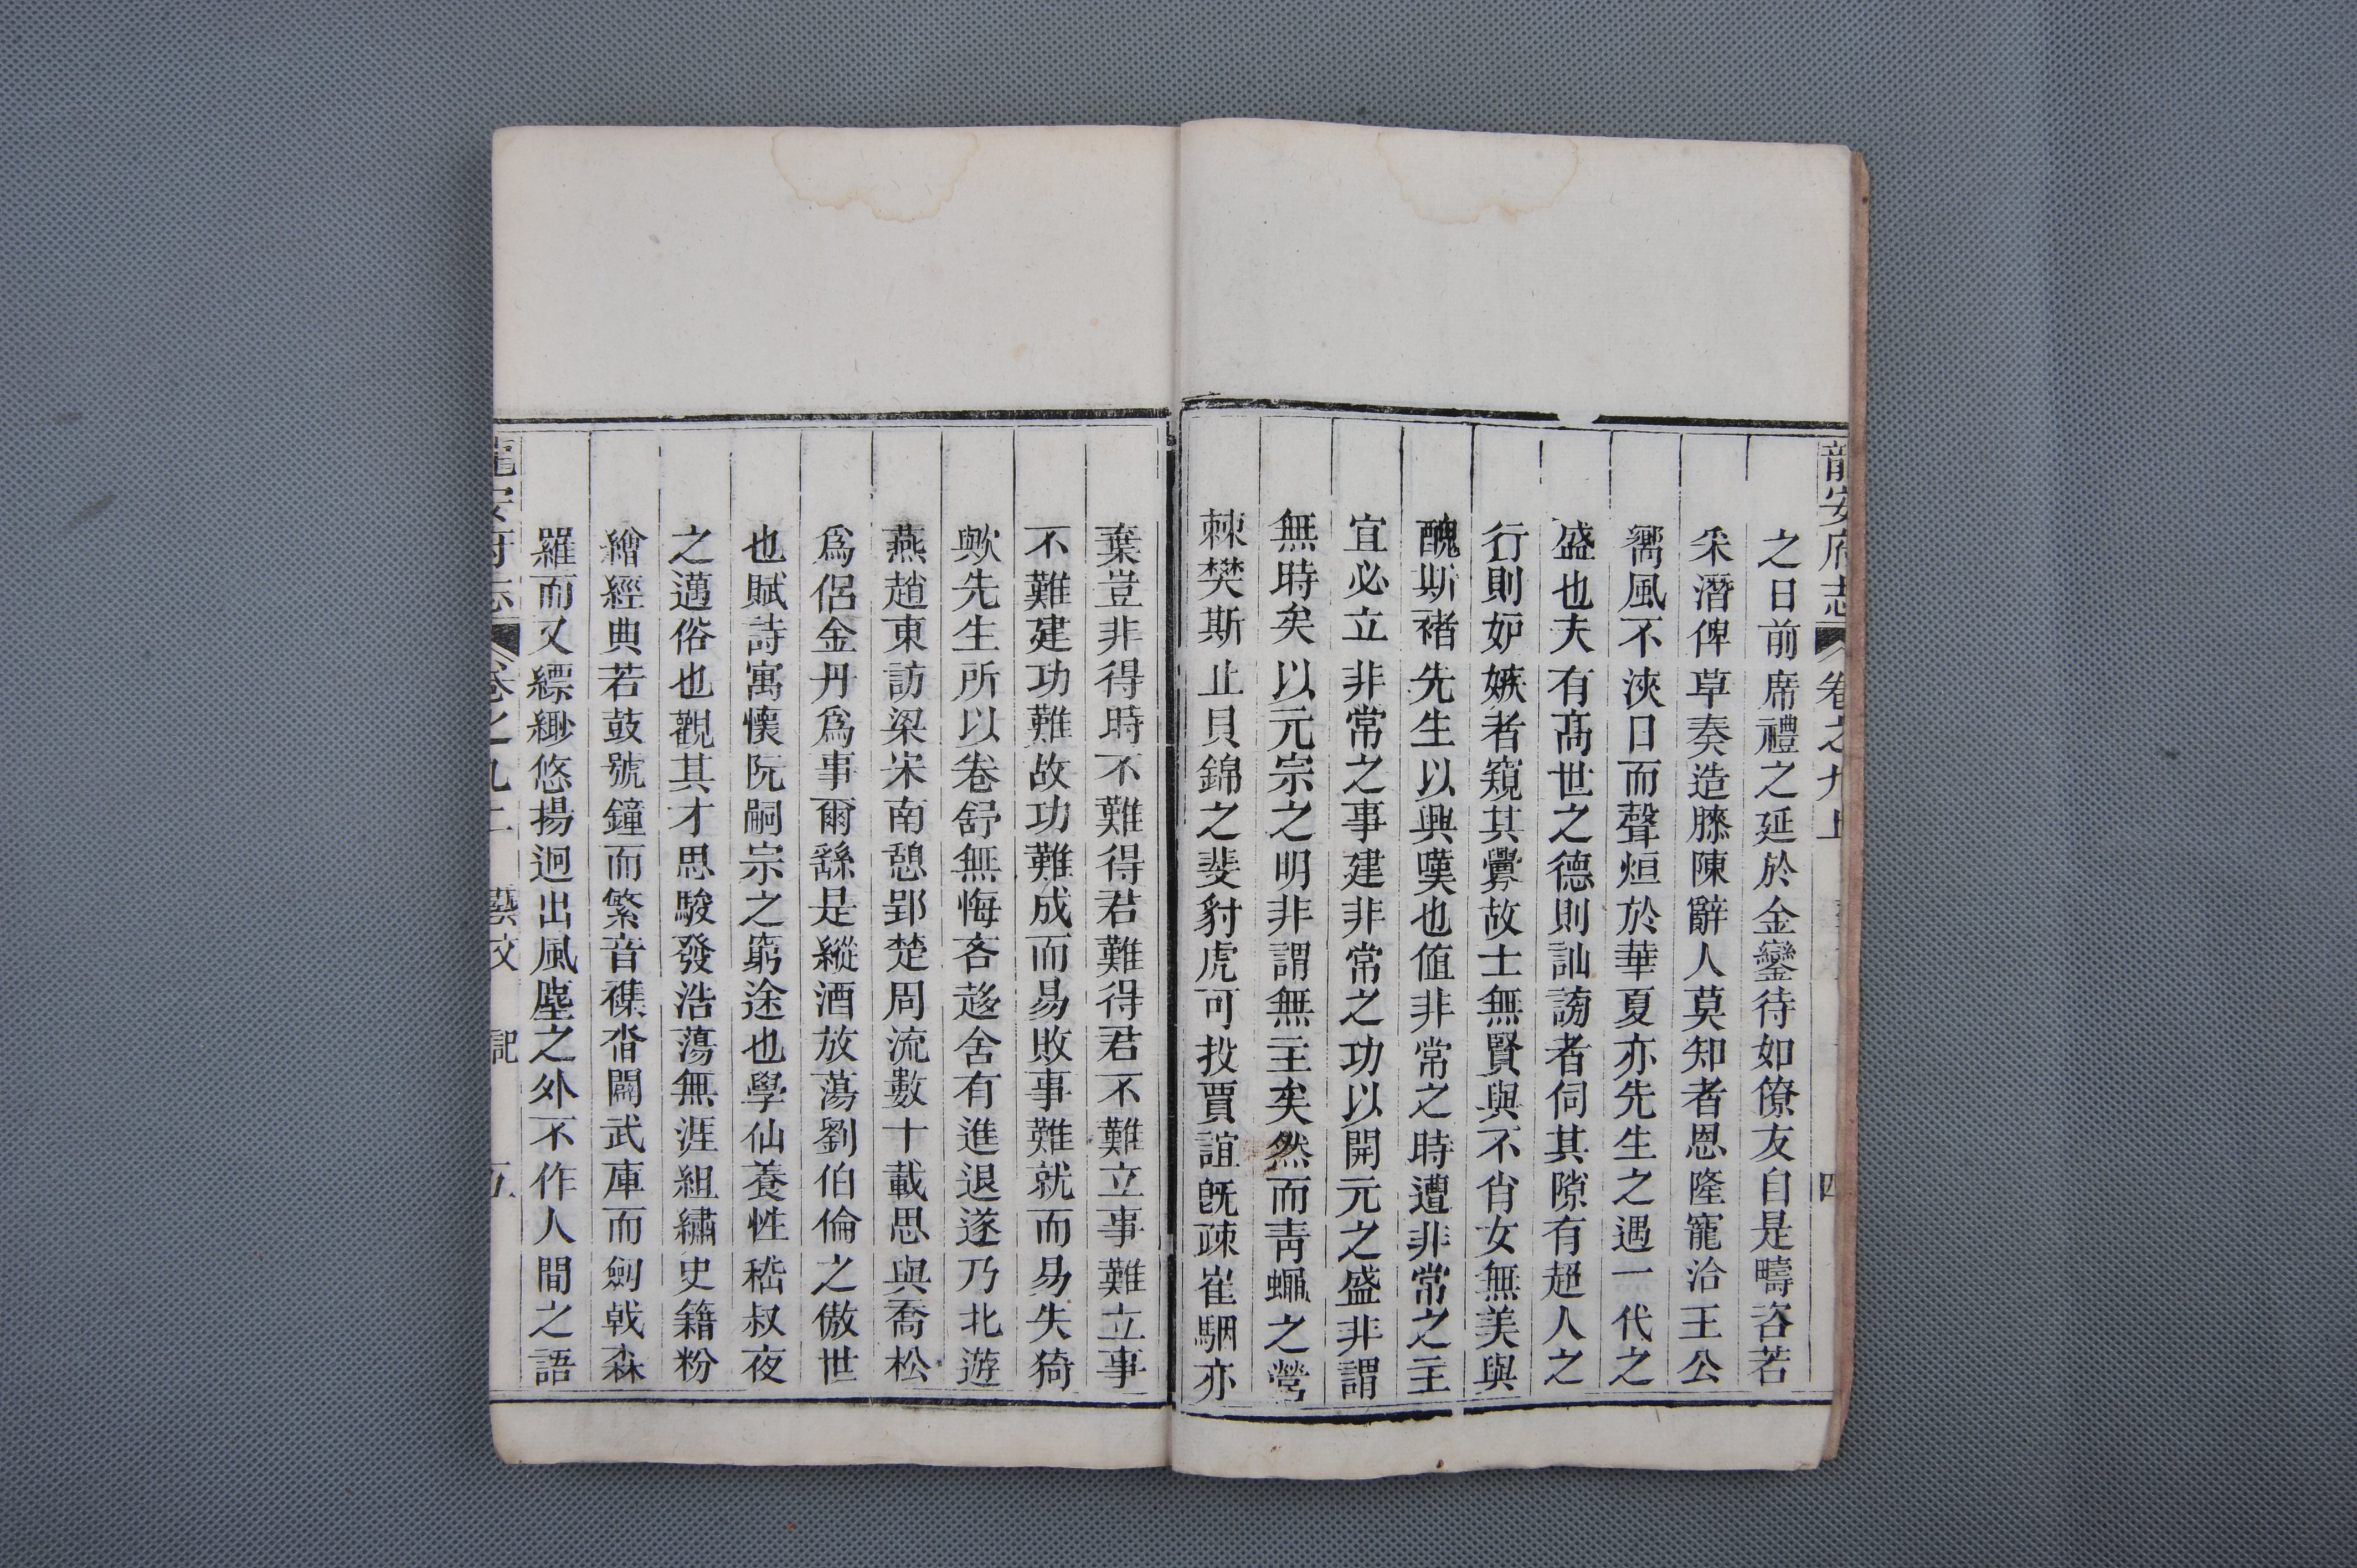 龍安府志 卷之九上 四
之日前席禮之延於金鑾待如僚友自是疇咨若
采潛俾草奏造膝陳辭人莫知者恩隆寵洽王公
嚮風不浹日而聲烜於華夏亦先生之遇一代之
盛也夫有髙世之德則訕謗者伺其隙有超人之
行則妒嫉者窺其釁故士無賢與不肖女無美與
醜斯褚先生以興嘆也值非常之時遭非常之主
宜必立非常之事建非常之功以開元之盛非謂
無時矣以元宗之明非謂無主矣然而靑蠅之營
棘樊斯止貝錦之斐豺虎可投賈誼旣疎崔駰亦
棄豈非得時不難得君難得君不難立事難立事
不難建功難故功難成而易敗事難就而易失猗
歟先生所以卷舒無悔吝趍舍有進退遂乃北遊
燕趙東訪梁宋南憩郢楚周流數十載思與喬松
爲侶金丹爲事爾繇是縱酒放蕩劉伯倫之傲世
也賦詩寓懷阮嗣宗之窮途也學仙養性嵇叔夜
之邁俗也觀其才思駿發浩蕩無涯組繡史籍粉
繪經典若鼓號鐘而繁音襍沓闢武庫而劍戟森
羅而又縹緲悠揚迥出風塵之外不作人間之語
龍安府志 卷之九上 藝文 記 五